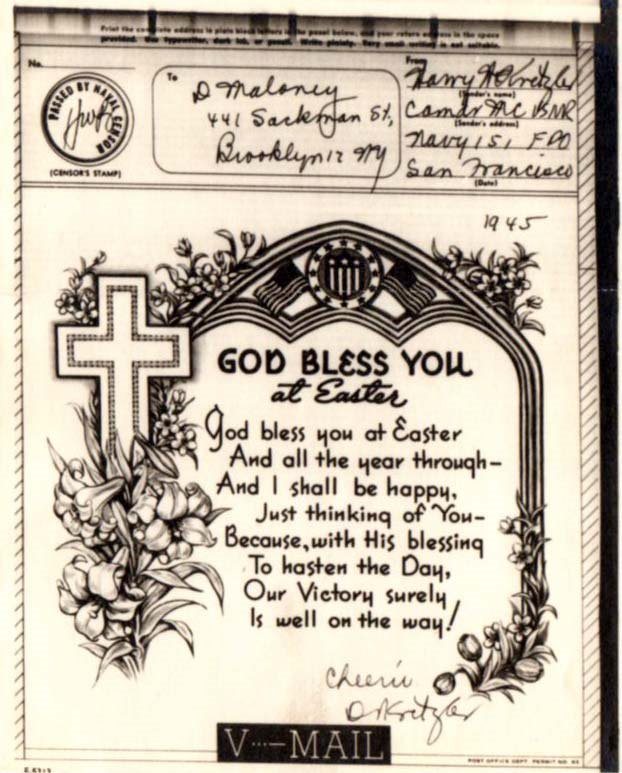 Print the complete address in plain block letters in the panel below, and your return address in the space
provided. Use typewriter, dark ink, or pencil. Write plainly. Very small writing is not suitable.
No.
PASSED BY NAVAL CENSOR
(CENSOR'S STAMP)
To
D Maloney
441 Sackman St,
Brooklyn 12 NY
From
Harry H Kretzler
(Sender's name)
Comdr MC USNR
(Sender's address)
Navy 151 FPO
San Francisco
(Date)
1945
GOD BLESS YOU
at Easter
God bless you at Easter
And all the year through-
And I shall be happy,
Just thinking of You-
Because, with His blessing
To hasten the Day,
Our Victory surely
Is well on the way!
Cheerio
Dr Kretzler
V···-MAIL
POST OFFICE DEPT. PERMIT NO.